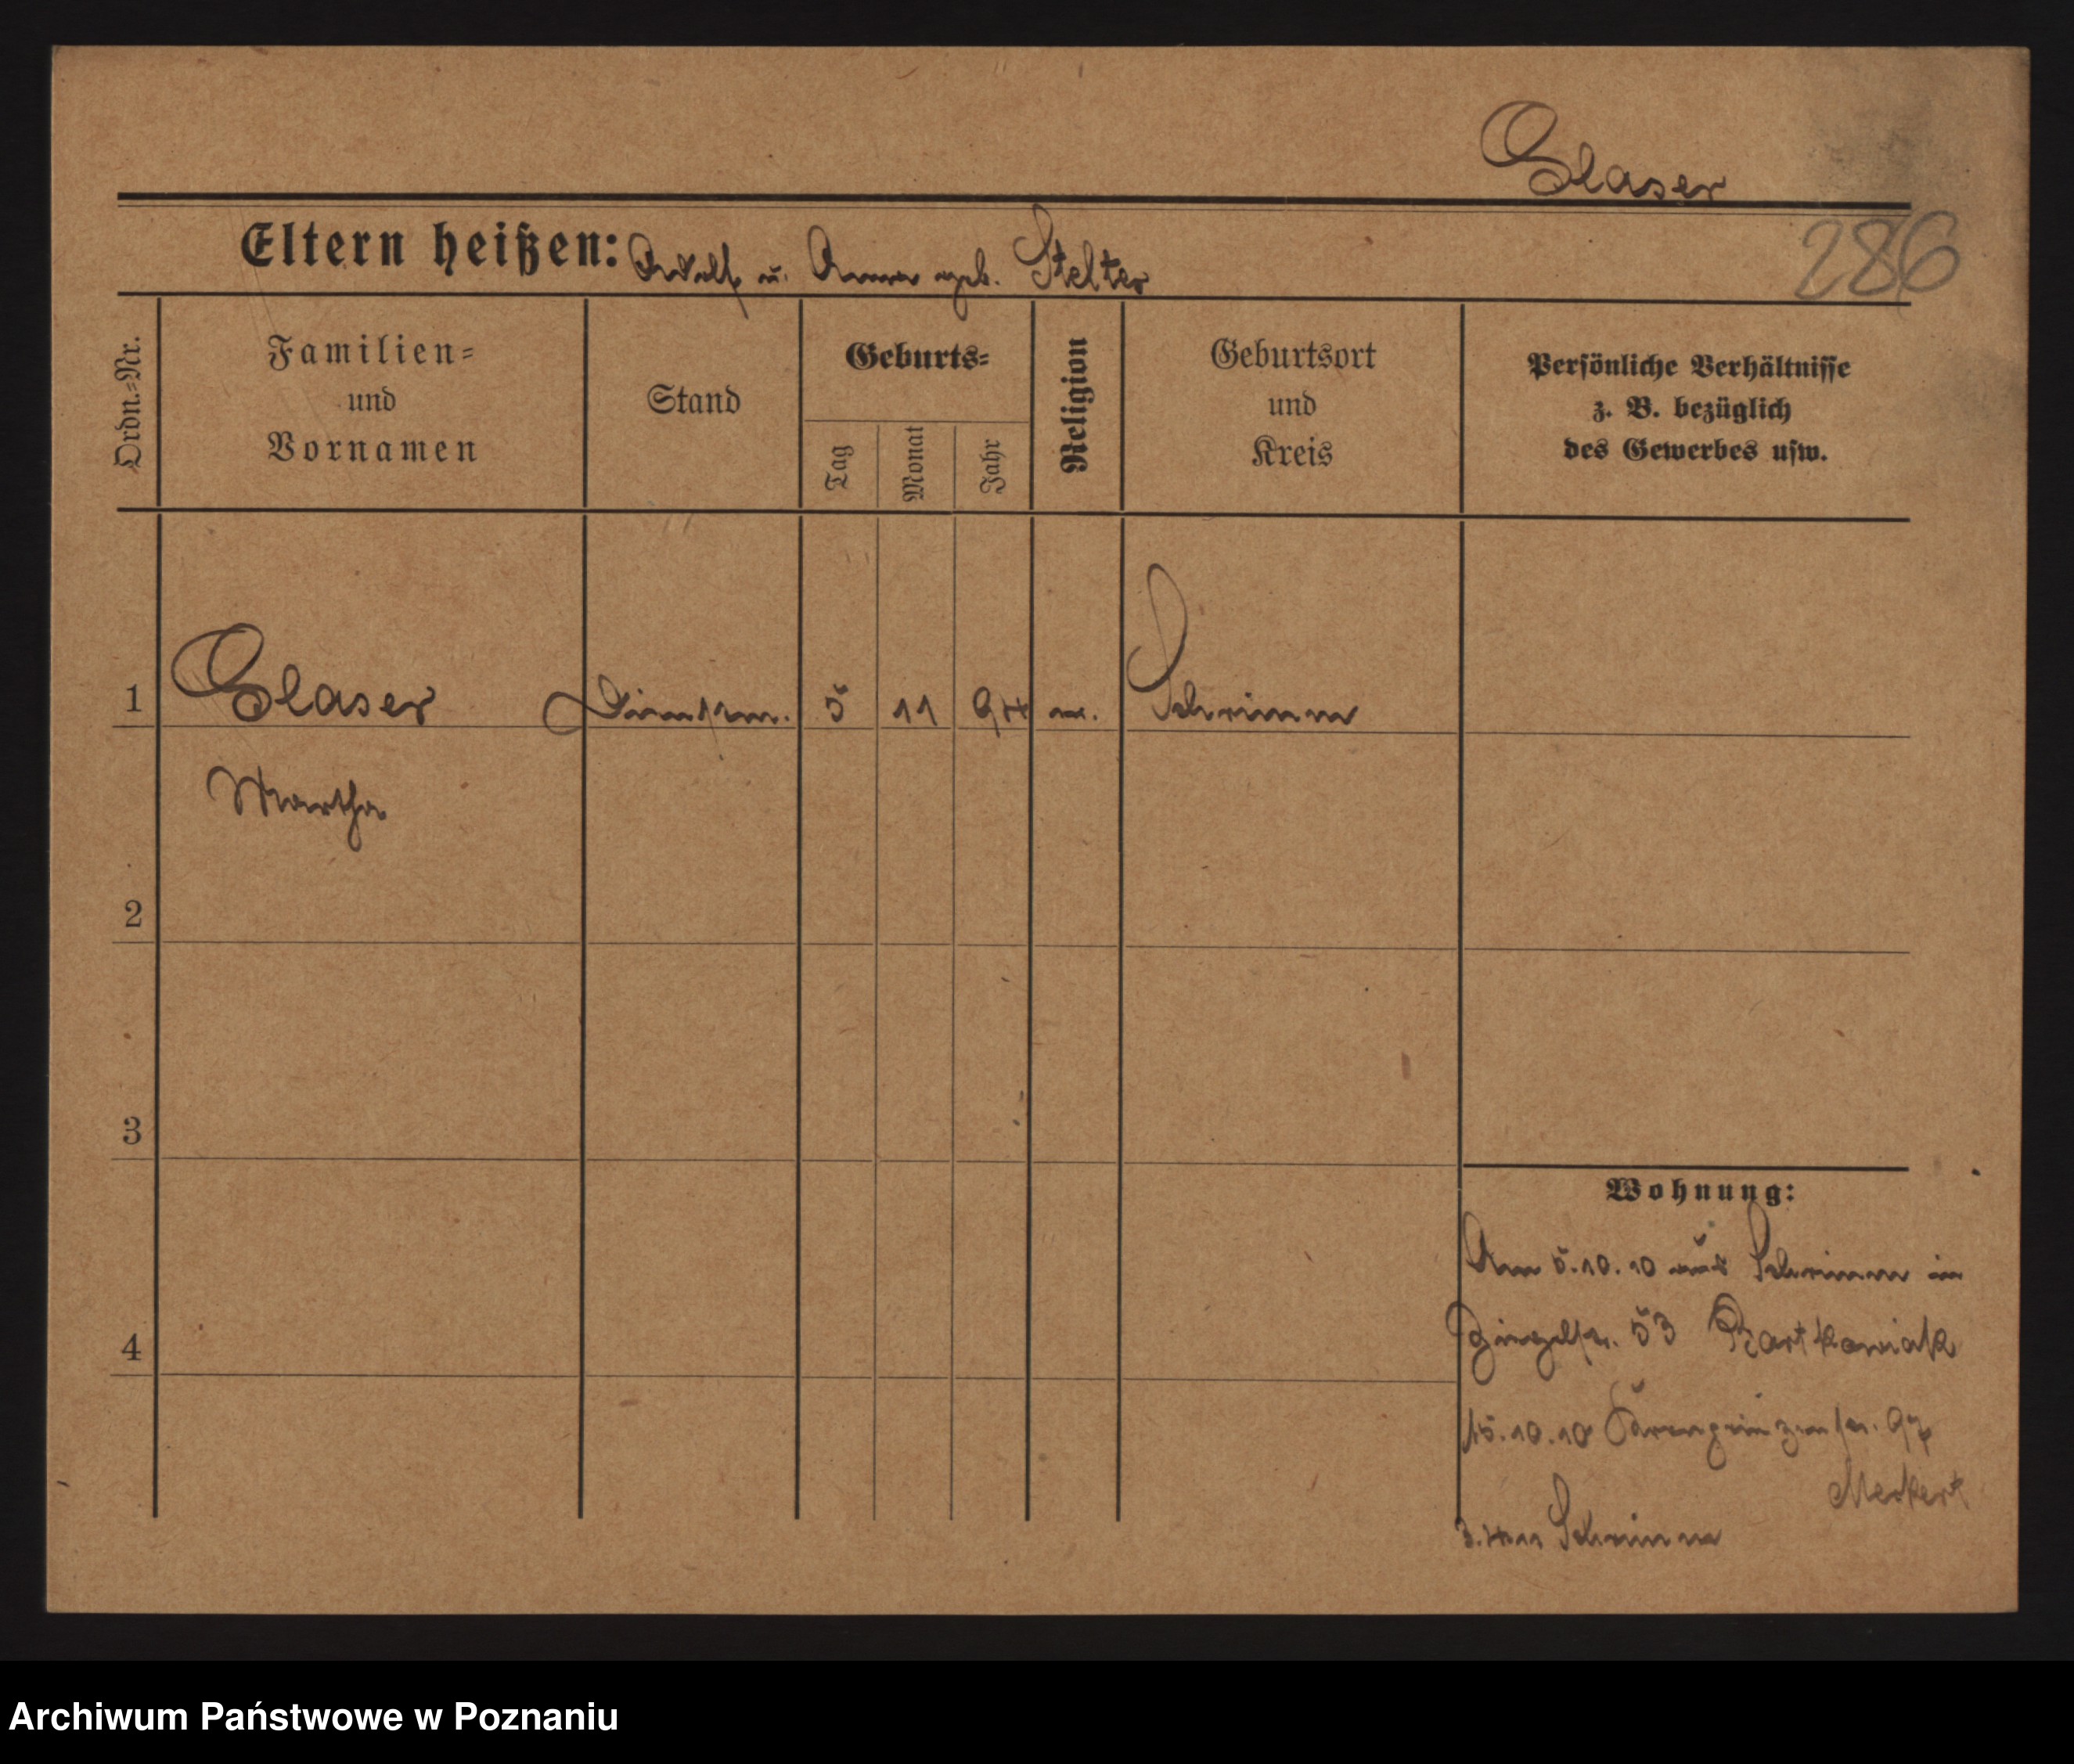 Glaser
286
Eltern heißen: Adolf u. Anna geb. Stelter
Ordn.=Nr.
Familien=
und
Vornamen
Stand
Geburts=
Tag
Monat
Jahr
Religion
Geburtsort
und
Kreis
Persönliche Verhältnisse
z. B. bezüglich
des Gewerbes usw.
1 Glaser Dienstm. 5 11 94 Schrimm
Martha
2
3
4
Wohnung:
Am 5.10.10 aus Schrimm in
53 Bartkowiak
15.10.10 97
Merkert
3.4.11 Schrimm
Archiwum Państwowe w Poznaniu